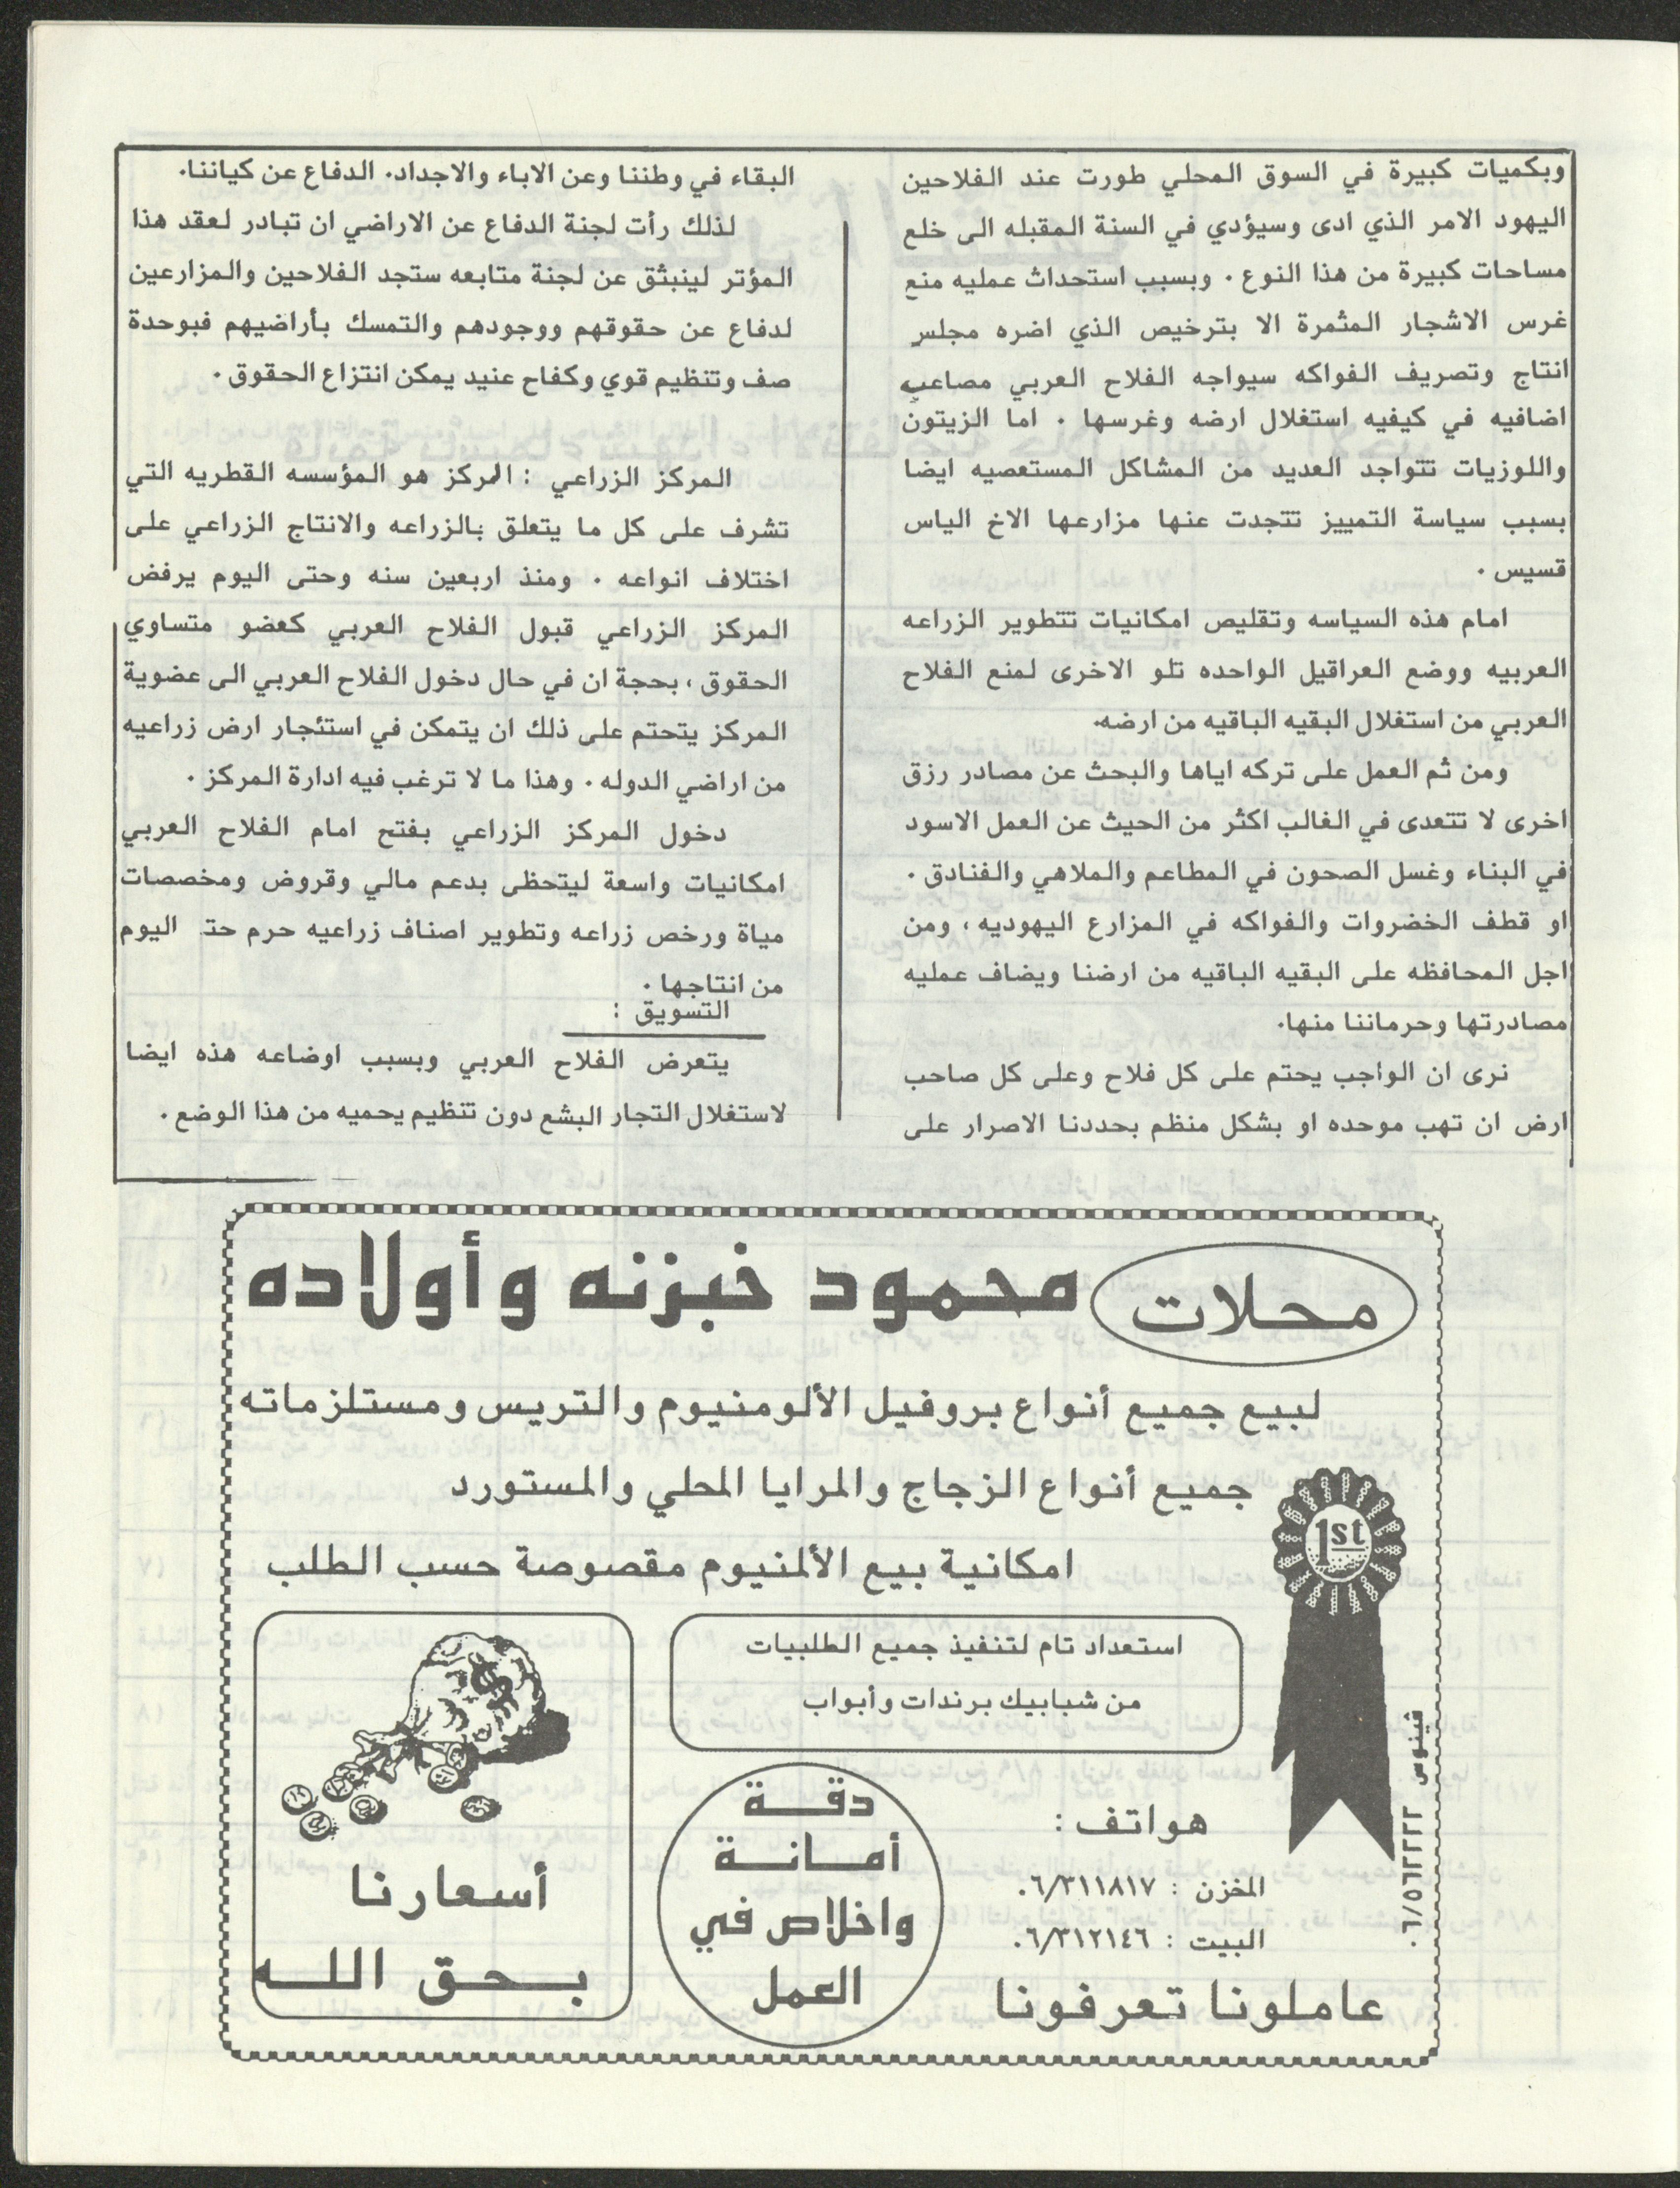 وبكميات كبيرة في السوق المحلي طورت عند الفلاحين
اليهود الامر الذي ادى وسيؤدي في السنة المقبله الى خلع
مساحات كبيرة من هذا النوع . وبسبب استحداث عمليه منع
غرس الاشجار المثمرة الا بترخيص الذي اضره مجلس
انتاج وتصريف الفواكه سيواجه الفلاح العربي مصاعب
اضافيه في كيفيه استغلال ارضه وغرسها . اما الزيتون
واللوزيات تتواجد العديد من المشاكل المستعصيه ايضا
بسبب سياسة التمييز تتجدت عنها مزارعها الاخ الياس
قسيس .
امام هذه السياسه وتقليص امكانيات تتطوير الزراعه
العربيه ووضع العراقيل الواحده تلو الاخرى لمنع الفلاح
العربي من استغلال البقيه الباقيه من ارضه.
ومن ثم العمل على تركه اياها والبحث عن مصادر رزق
اخرى لا تتعدى في الغالب اكثر من الحيث عن العمل الاسود
في البناء وغسل الصحون في المطاعم والملاهي والفنادق .
او قطف الخضروات والفواكه في المزارع اليهوديه ، ومن
اجل المحافظه على البقيه الباقيه من ارضنا ويضاف عمليه
مصادرتها وحرماننا منها.
نرى ان الواجب يحتم على كل فلاح وعلى كل صاحب
ارض ان تهب موحده او بشكل منظم بحددنا الاصرار على
البقاء في وطننا وعن الاباء والاجداد. الدفاع عن كياننا.
لذلك رأت لجنة الدفاع عن الاراضي ان تبادر لعقد هذا
المؤتر لينبثق عن لجنة متابعه ستجد الفلاحين والمزارعين
لدفاع عن حقوقهم ووجودهم والتمسك بأراضيهم فبوحدة
صف وتنظيم قوي وكفاح عنيد يمكن انتزاع الحقوق .
المركز الزراعي : المركز هو المؤسسه القطريه التي
تشرف على كل ما يتعلق بالزراعه والانتاج الزراعي على
اختلاف انواعه . ومنذ اربعين سنه وحتى اليوم يرفض
المركز الزراعي قبول الفلاح العربي كعضو متساوي
الحقوق ، بحجة ان في حال دخول الفلاح العربي الى عضوية
المركز يتحتم على ذلك ان يتمكن في استئجار ارض زراعيه
من اراضي الدوله . وهذا ما لا ترغب فيه ادارة المركز .
دخول المركز الزراعي بفتح امام الفلاح العربي
امكانيات واسعة ليتحظى بدعم مالي وقروض ومخصصات
مياة ورخص زراعه وتطوير اصناف زراعيه حرم حتـ اليوم
من انتاجها .
التسويق :
يتعرض الفلاح العربي وبسبب اوضاعه هذه ايضا
لاستغلال التجار البشع دون تنظيم يحميه من هذا الوضع .
محلات محمود خبزنه وأولاده
لبيع جميع أنواع بروفيل الألومنيوم والتريس ومستلزماته
جميع أنواع الزجاج والمرايا المحلي والمستورد
1st
امكانية بيع الألمنيوم مقصوصة حسب الطلب
استعداد تام لتنفيذ جميع الطلبيات
من شبابيك برندات وأبواب
هواتف :
المخزن : ٠٦/٣١١٨١٧
البيت : ٠٦/٣١٢١٤٦
عاملونا تعرفونا
فينوس ٠٦/٥٦٢٢٢٢
دقــة
أمــانــة
واخلاص في
العمل
أسعارنا
بــحــق اللــه